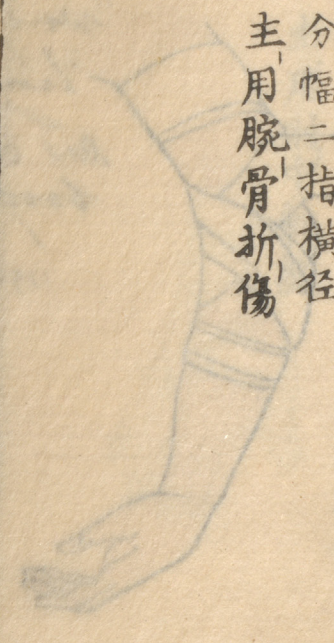 分幅二指横径
主用腕骨折傷